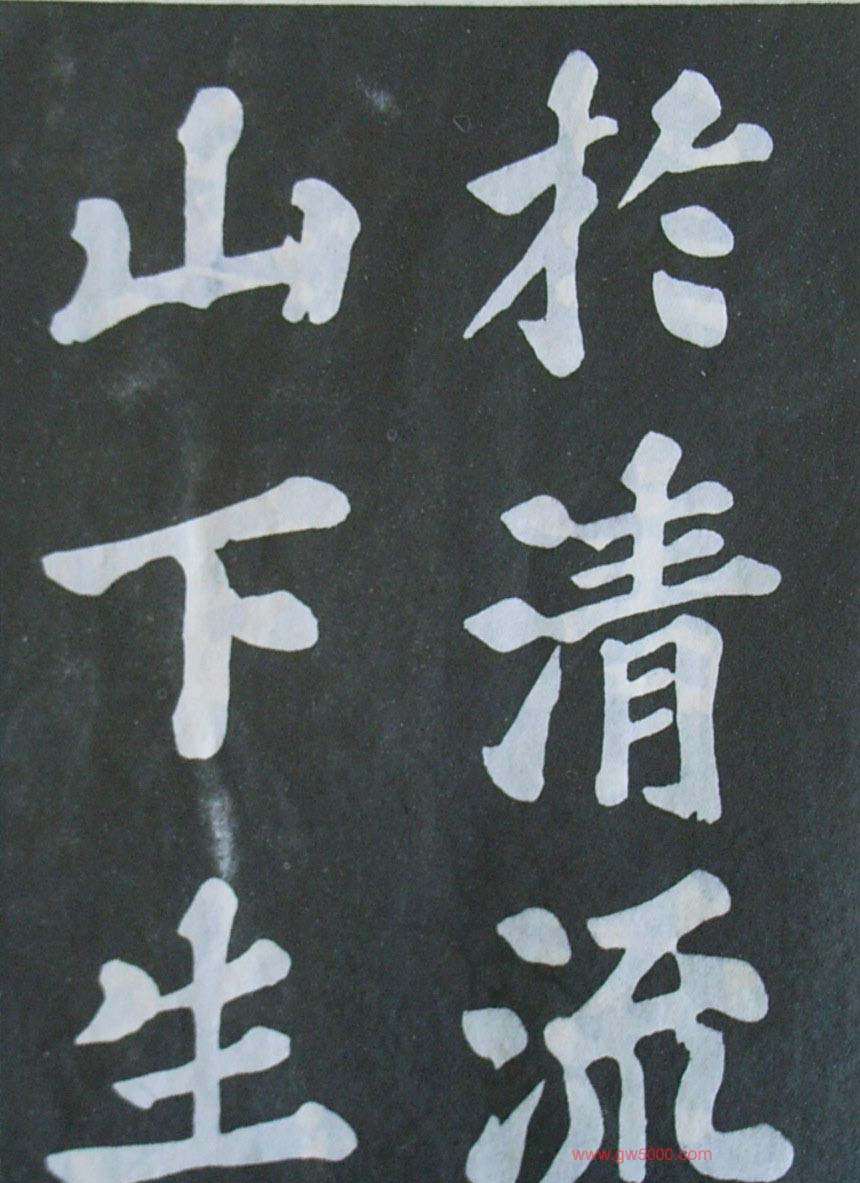 於清流
山下生
www.gw5000.com